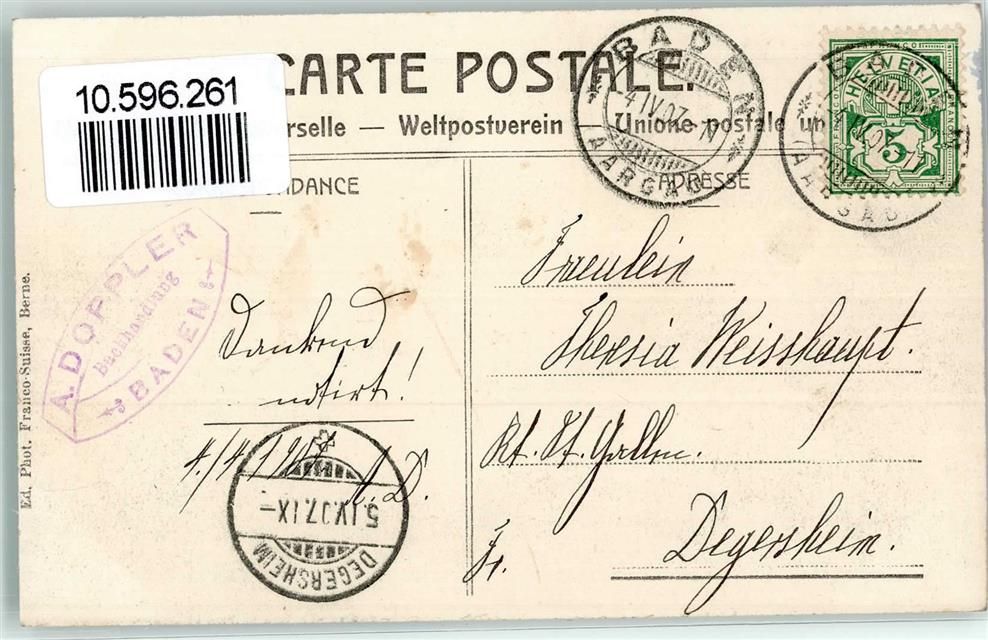 10.596.261
CARTE POSTALE.
erselle — Weltpostverein — Unione postale un
NDANCE
ADRESSE
BADEN
4.IV.07.
AARGAU
HELVETIA
5
BADEN
AARGAU
A. DOPPLER
Buchhandlung
BADEN
Ed. Phot. Franco-Suisse, Berne.
Dankend
notirt!
4./4.1907 A. D.
DEGERSHEIM
5.IV.07.IX–
Fraeulein
Theresia Weisshaupt.
Kt. St. Gallen.
Fr. Degersheim.